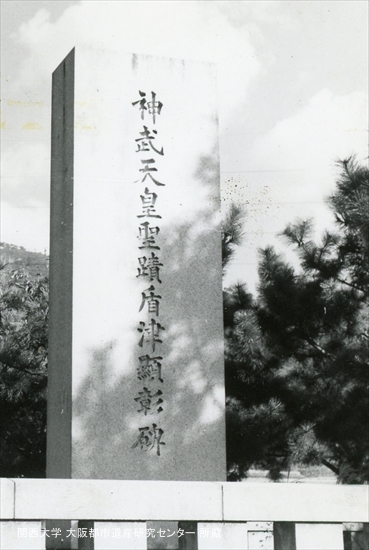 神武天皇聖蹟盾津顯彰碑
関西大学 大阪都市遺産研究センター 所蔵